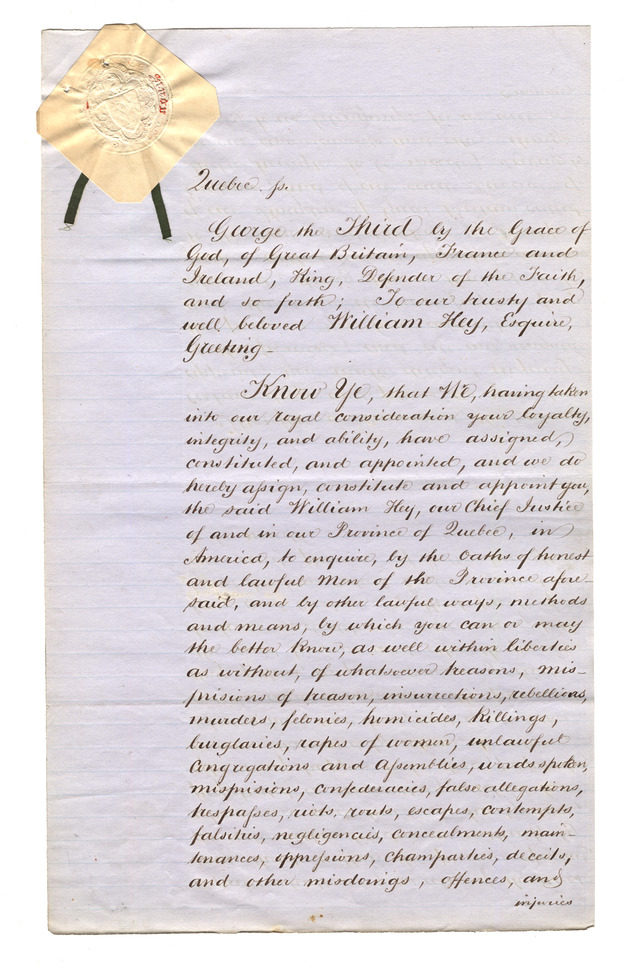 Quebec. ſs.
George the Third by the Grace of
God, of Great Britain, France and
Ireland, King, Defender of the Faith,
and so forth; To our trusty and
well beloved William Hey, Esquire,
Greeting-
Know Ye, that We, having taken
into our royal consideration your loyalty,
integrity, and ability, have assigned,
constituted, and appointed, and we do
hereby aſsign, constitute and appoint you,
the said William Hey, our Chief Justice
of and in our Province of Quebec, in
America, to enquire, by the Oaths of honest
and lawful Men of the Province afore-
said, and by other lawful ways, methods
and means, by which you can or may
the better know, as well within liberties
as without, of whatsoever treasons, mis-
prisions of treason, insurrections, rebellions,
murders, felonies, homicides, killings,
burglaries, rapes of women, unlawful
Congregations and Aſsemblies, words spoken,
misprisions, confederacies, false allegations,
trespaſses, riots, routs, escapes, contempts,
falsities, negligencies, concealments, main-
tenances, oppreſsions, champarties, deceits,
and other misdoings, offences, and
injuries